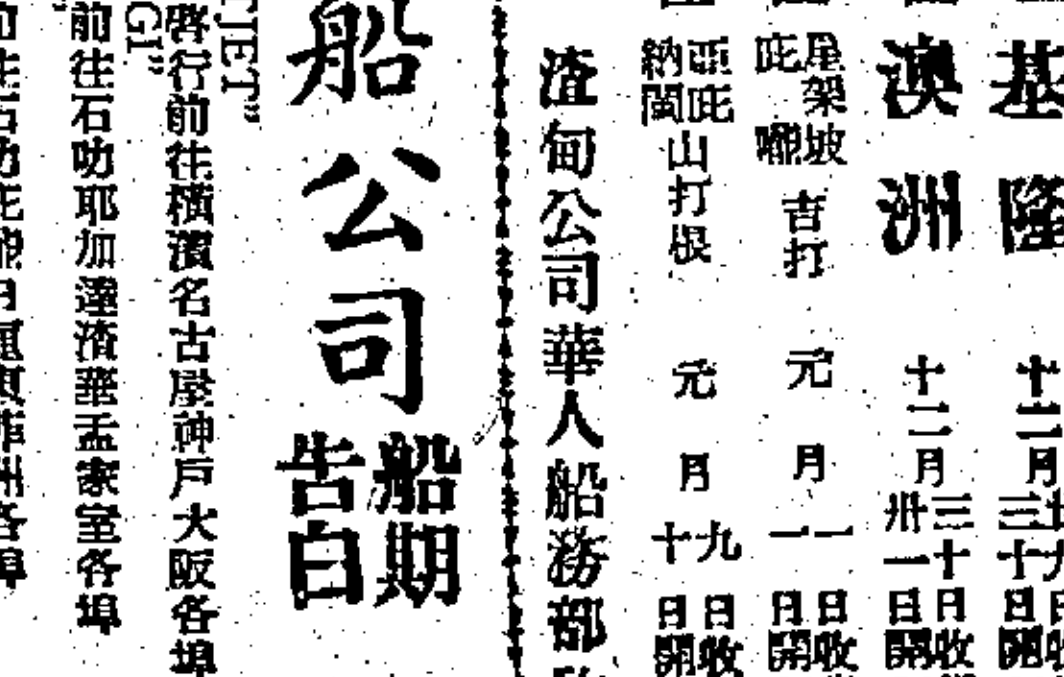 基隆 十二月 廿九日收 三十日開
澳洲 十二月 三十日收 卅一日開
星架坡 吉打 元月 一日收 一日開
亞庇 納閩 山打根 元月 九日收 十日開
渣甸公司華人船務部
船公司 船期告白
TJET”
啓行前往橫濱名古屋神戶大阪各埠
GI”
前往石叻耶加達渣華孟家室各埠